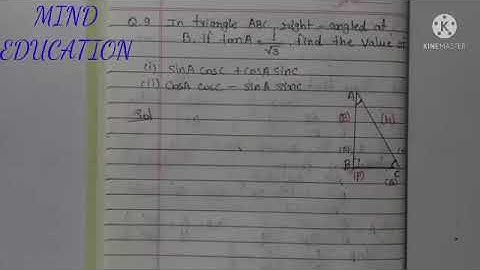 MIND
EDUCATION
Q.9 In triangle ABC, right-angled at
B. If tan A = 1/√3, find the value of
(i) sinA cosC + cosA sinC
(ii) cosA cosC - sinA sinC
Sol
A
(B)
(H)
B
C
(P)
KINEMASTER